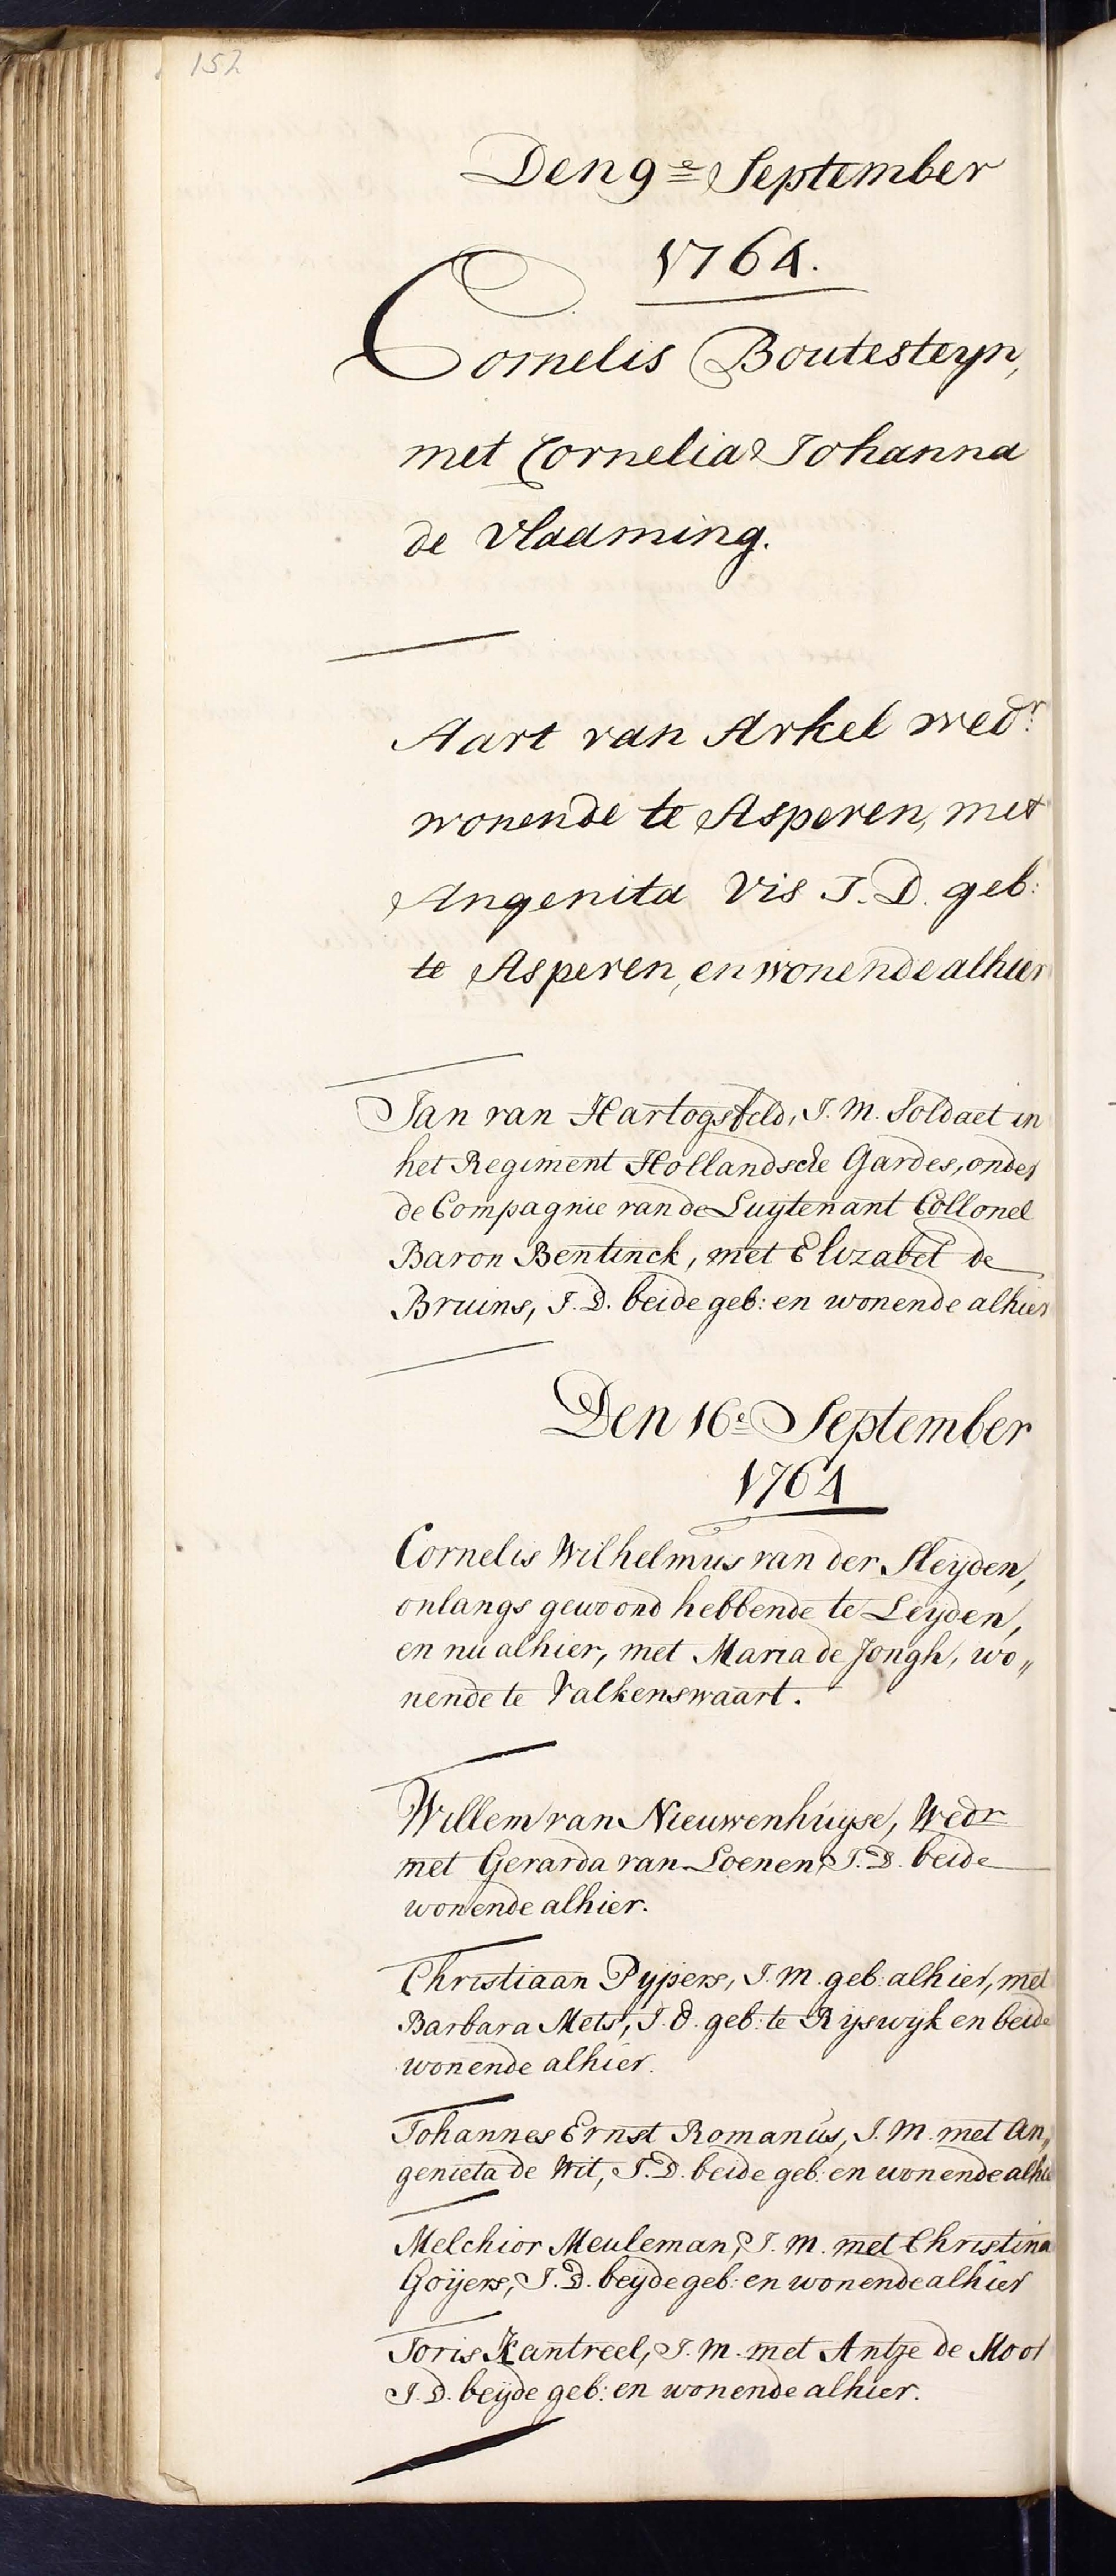 152
Den 9e September
1764.
Cornelis Boutesteyn,
met Cornelia Johanna
de Vlaaming.
Aart van Arkel wedr.
wonende te Asperen, met
Angenita Vis J. D. geb:
te Asperen, en wonende alhier
Jan van Hartogsveld, J. M. Soldaet in
het Regiment Hollandsche Gardes, onder
de Compagnie van de Luijtenant Collonel
Baron Bentinck, met Elizabet de
Bruins, J. D. beide geb: en wonende alhier
Den 16e September
1764
Cornelis Wilhelmus van der Sleijden,
onlangs gewoond hebbende te Leijden,
en nu alhier, met Maria de Jongh, wo„
nende te Valkenswaart.
Willem van Nieuwenhuijse, Wedr
met Gerarda van Loenen, J. D. beide
wonende alhier.
Christiaan Pijpers, J. M. geb: alhier, met
Barbara Mets, J. d. geb: te Rijswijk en beide
wonende alhier.
Johannes Ernst Romanus, J. M. met An„
genieta de Wit, J. D. beide geb: en wonende alhie
Melchior Meuleman, J. M. met Christina
Goijers, J. D. beijde geb: en wonende alhier
Joris Kantreel, J. M. met Antje de Mool
J. D. beijde geb: en wonende alhier.